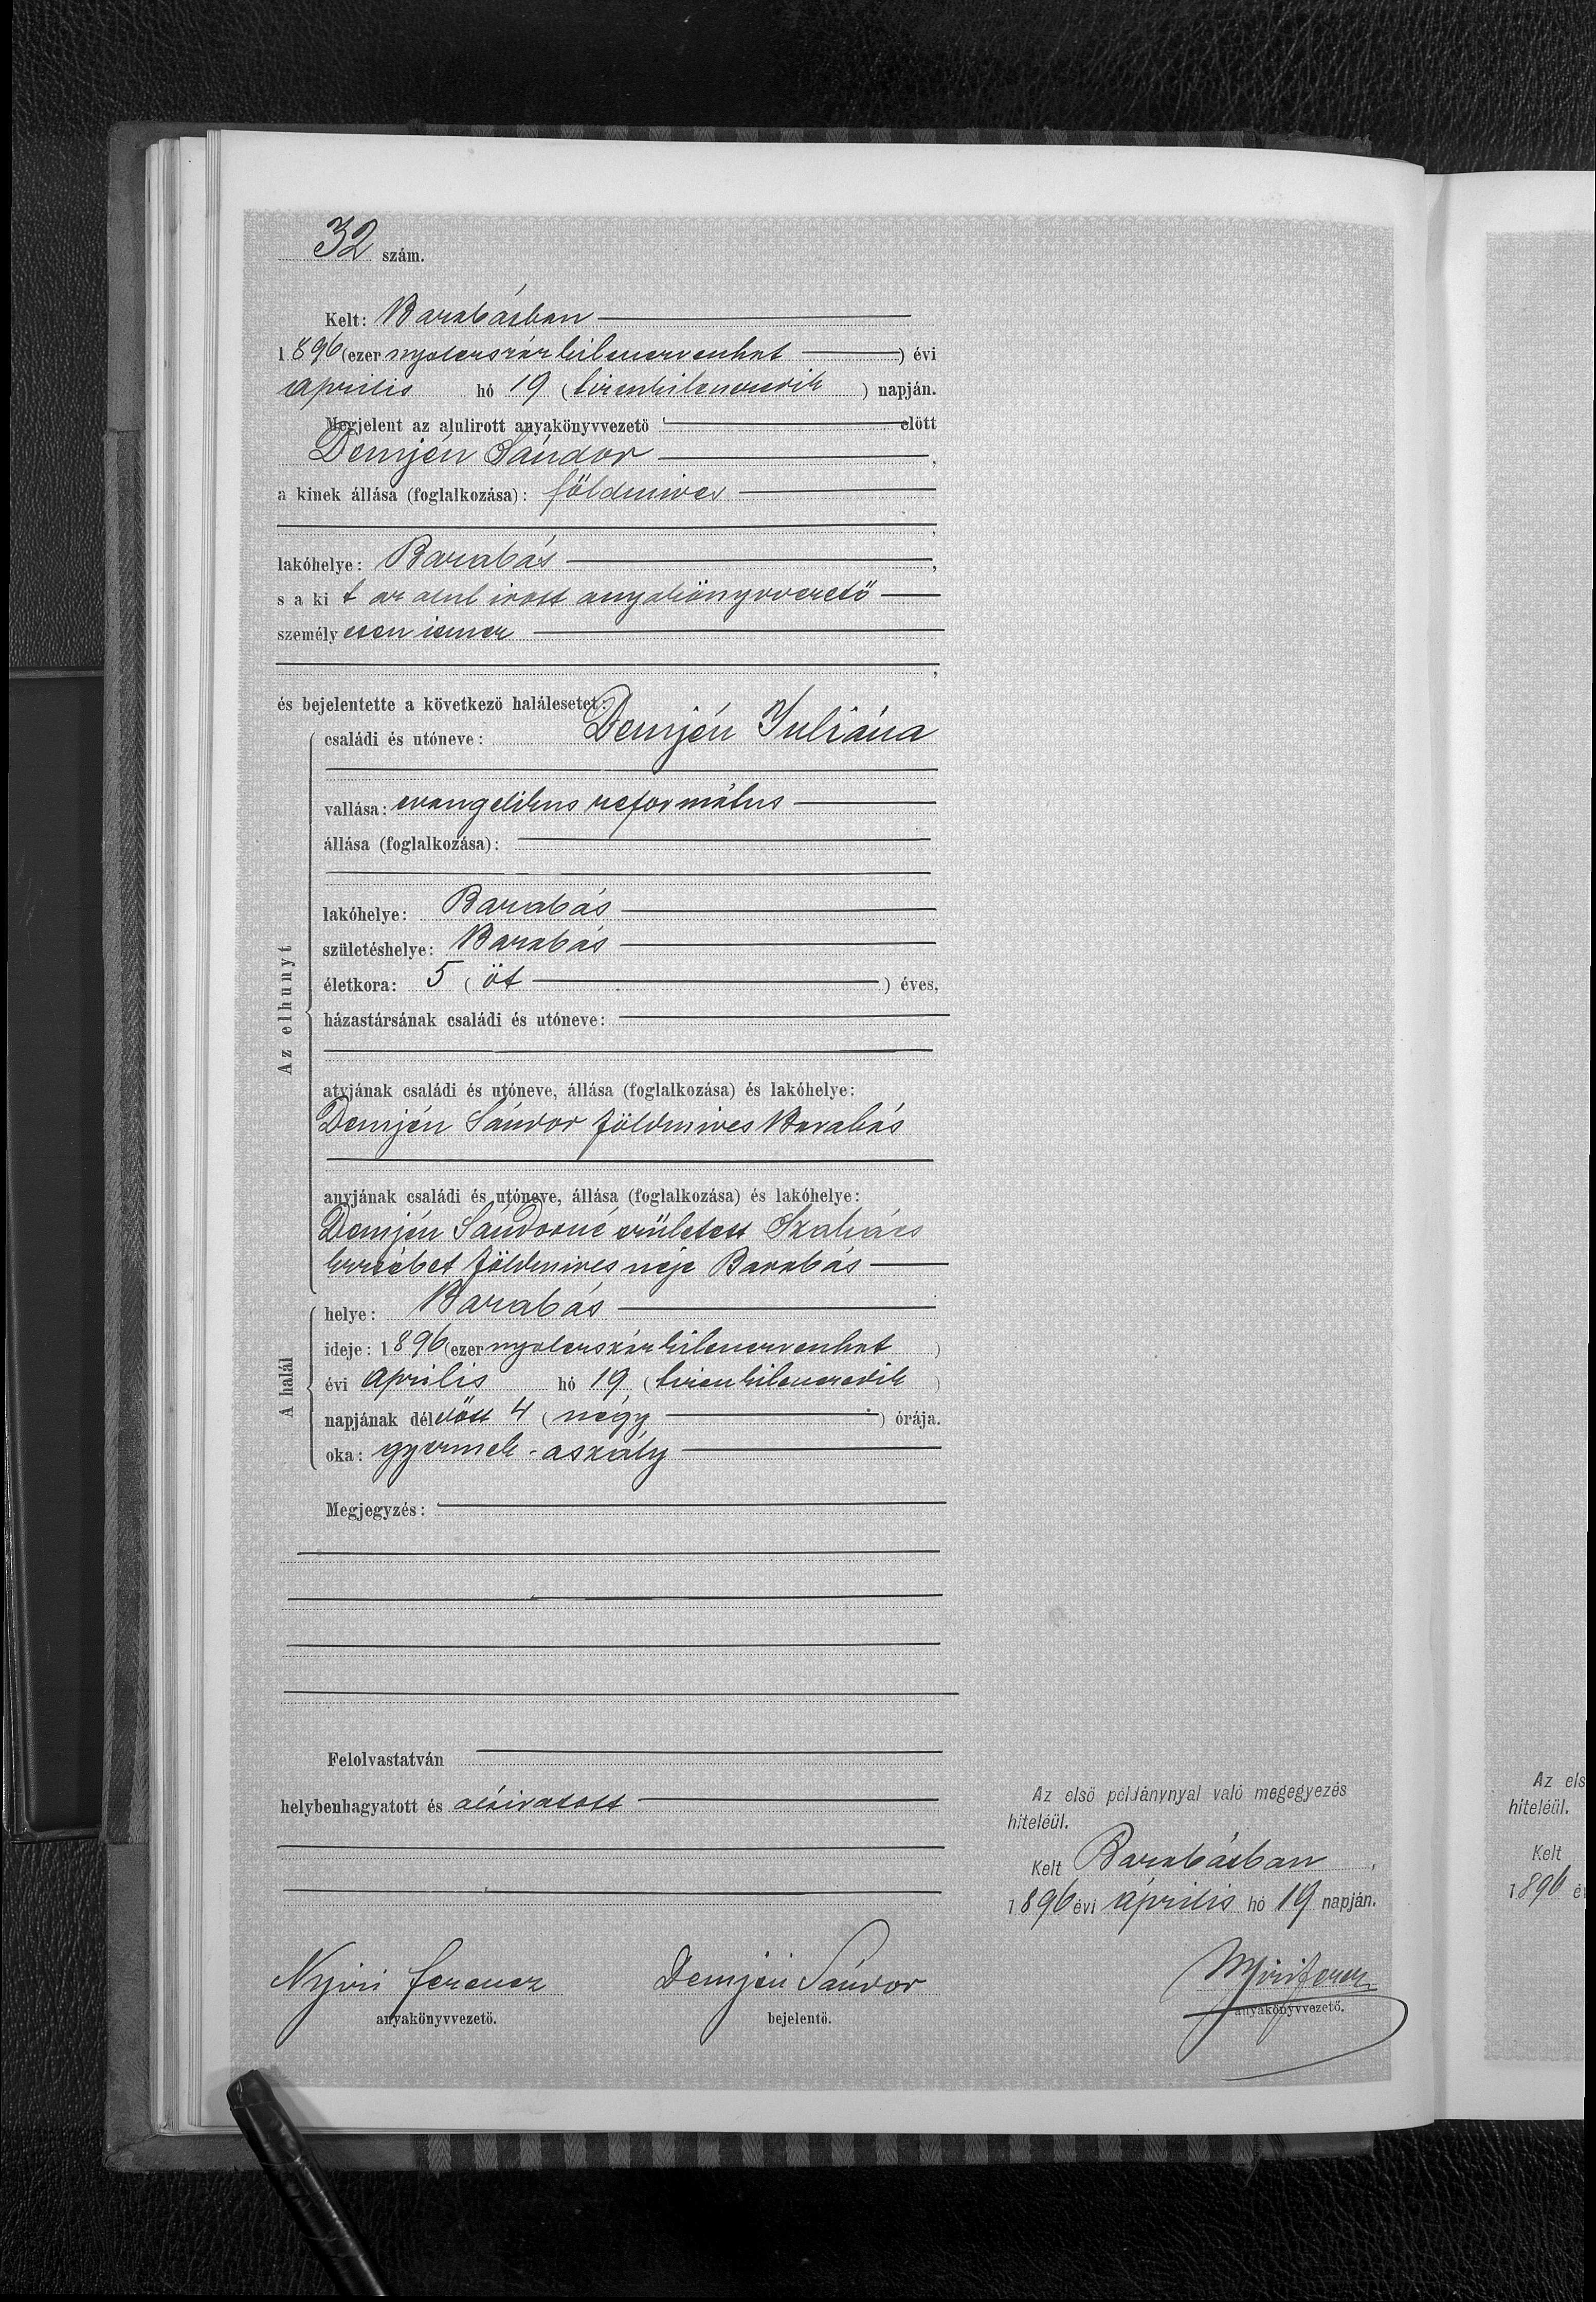 32 szám.
Kelt: Barabásban
1896 (ezer nyolcszázkilencvenhat) évi
április hó 19 (tizenkilencedik) napján.
Megjelent az alulirott anyakönyvvezető előtt
Demjén Sándor,
a kinek állása (foglalkozása): földmives
lakóhelye: Barabás,
s a kit az alul irott anyakönyvvezető
személyesen ismer,
és bejelentette a következő halálesetet:
Az elhunyt
családi és utóneve: Demjén Juliána
vallása: evangelikus református
állása (foglalkozása):
lakóhelye: Barabás
születéshelye: Barabás
életkora: 5 (öt) éves,
házastársának családi és utóneve:
atyjának családi és utóneve, állása (foglalkozása) és lakóhelye:
Demjén Sándor földmives Barabás
anyjának családi és utóneve, állása (foglalkozása) és lakóhelye:
Demjén Sándorné született Szakács
Erzsébet földmives neje Barabás
A halál
helye: Barabás
ideje: 1896 (ezer nyolcszázkilencvenhat)
évi április hó 19 (tizenkilencedik)
napjának délelőtt 4 (négy) órája.
oka: gyermek-aszály
Megjegyzés:
Felolvastatván
helybenhagyatott és aláiratott
Az első példánynyal való megegyezés
hiteléül.
Kelt Barabásban,
1896 évi április hó 19 napján.
Nyiri Ferencz Demjén Sándor Nyiri Ferencz
anyakönyvvezető. bejelentő. anyakönyvvezető.
Az els
hiteléül.
Kelt
1896 é